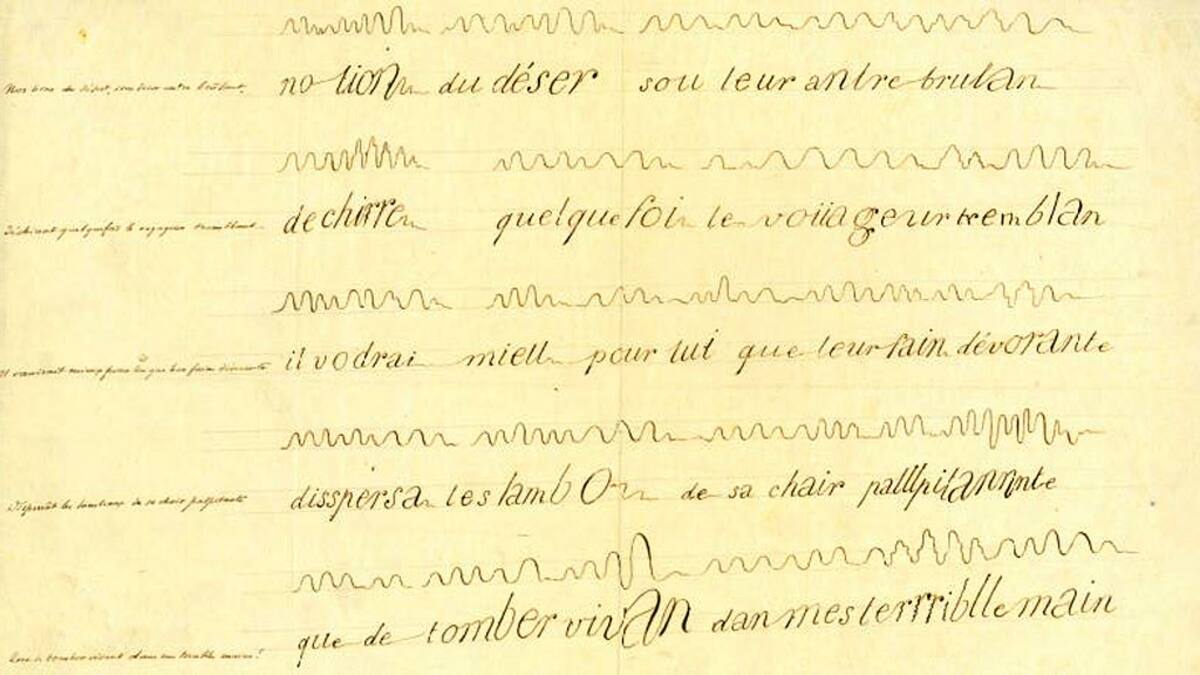 Nos lions du désert, sous leur antre brûlant,
no lionn du déser sou leur antre brulan
Déchirent quelquefois le voyageur tremblant
dechirre quelque foi le voüageur tremblan
Il vaudrait mieux pour lui que leur faim dévorante
il vodrai miell pour lui que leur fain dévorante
Dispersât les lambeaux de sa chair palpitante
disspersa les lambO de sa chair palllpitannnte
Que de tomber vivant dans mes terribles mains!
que de tomber vivAn dan mes terrriblle main